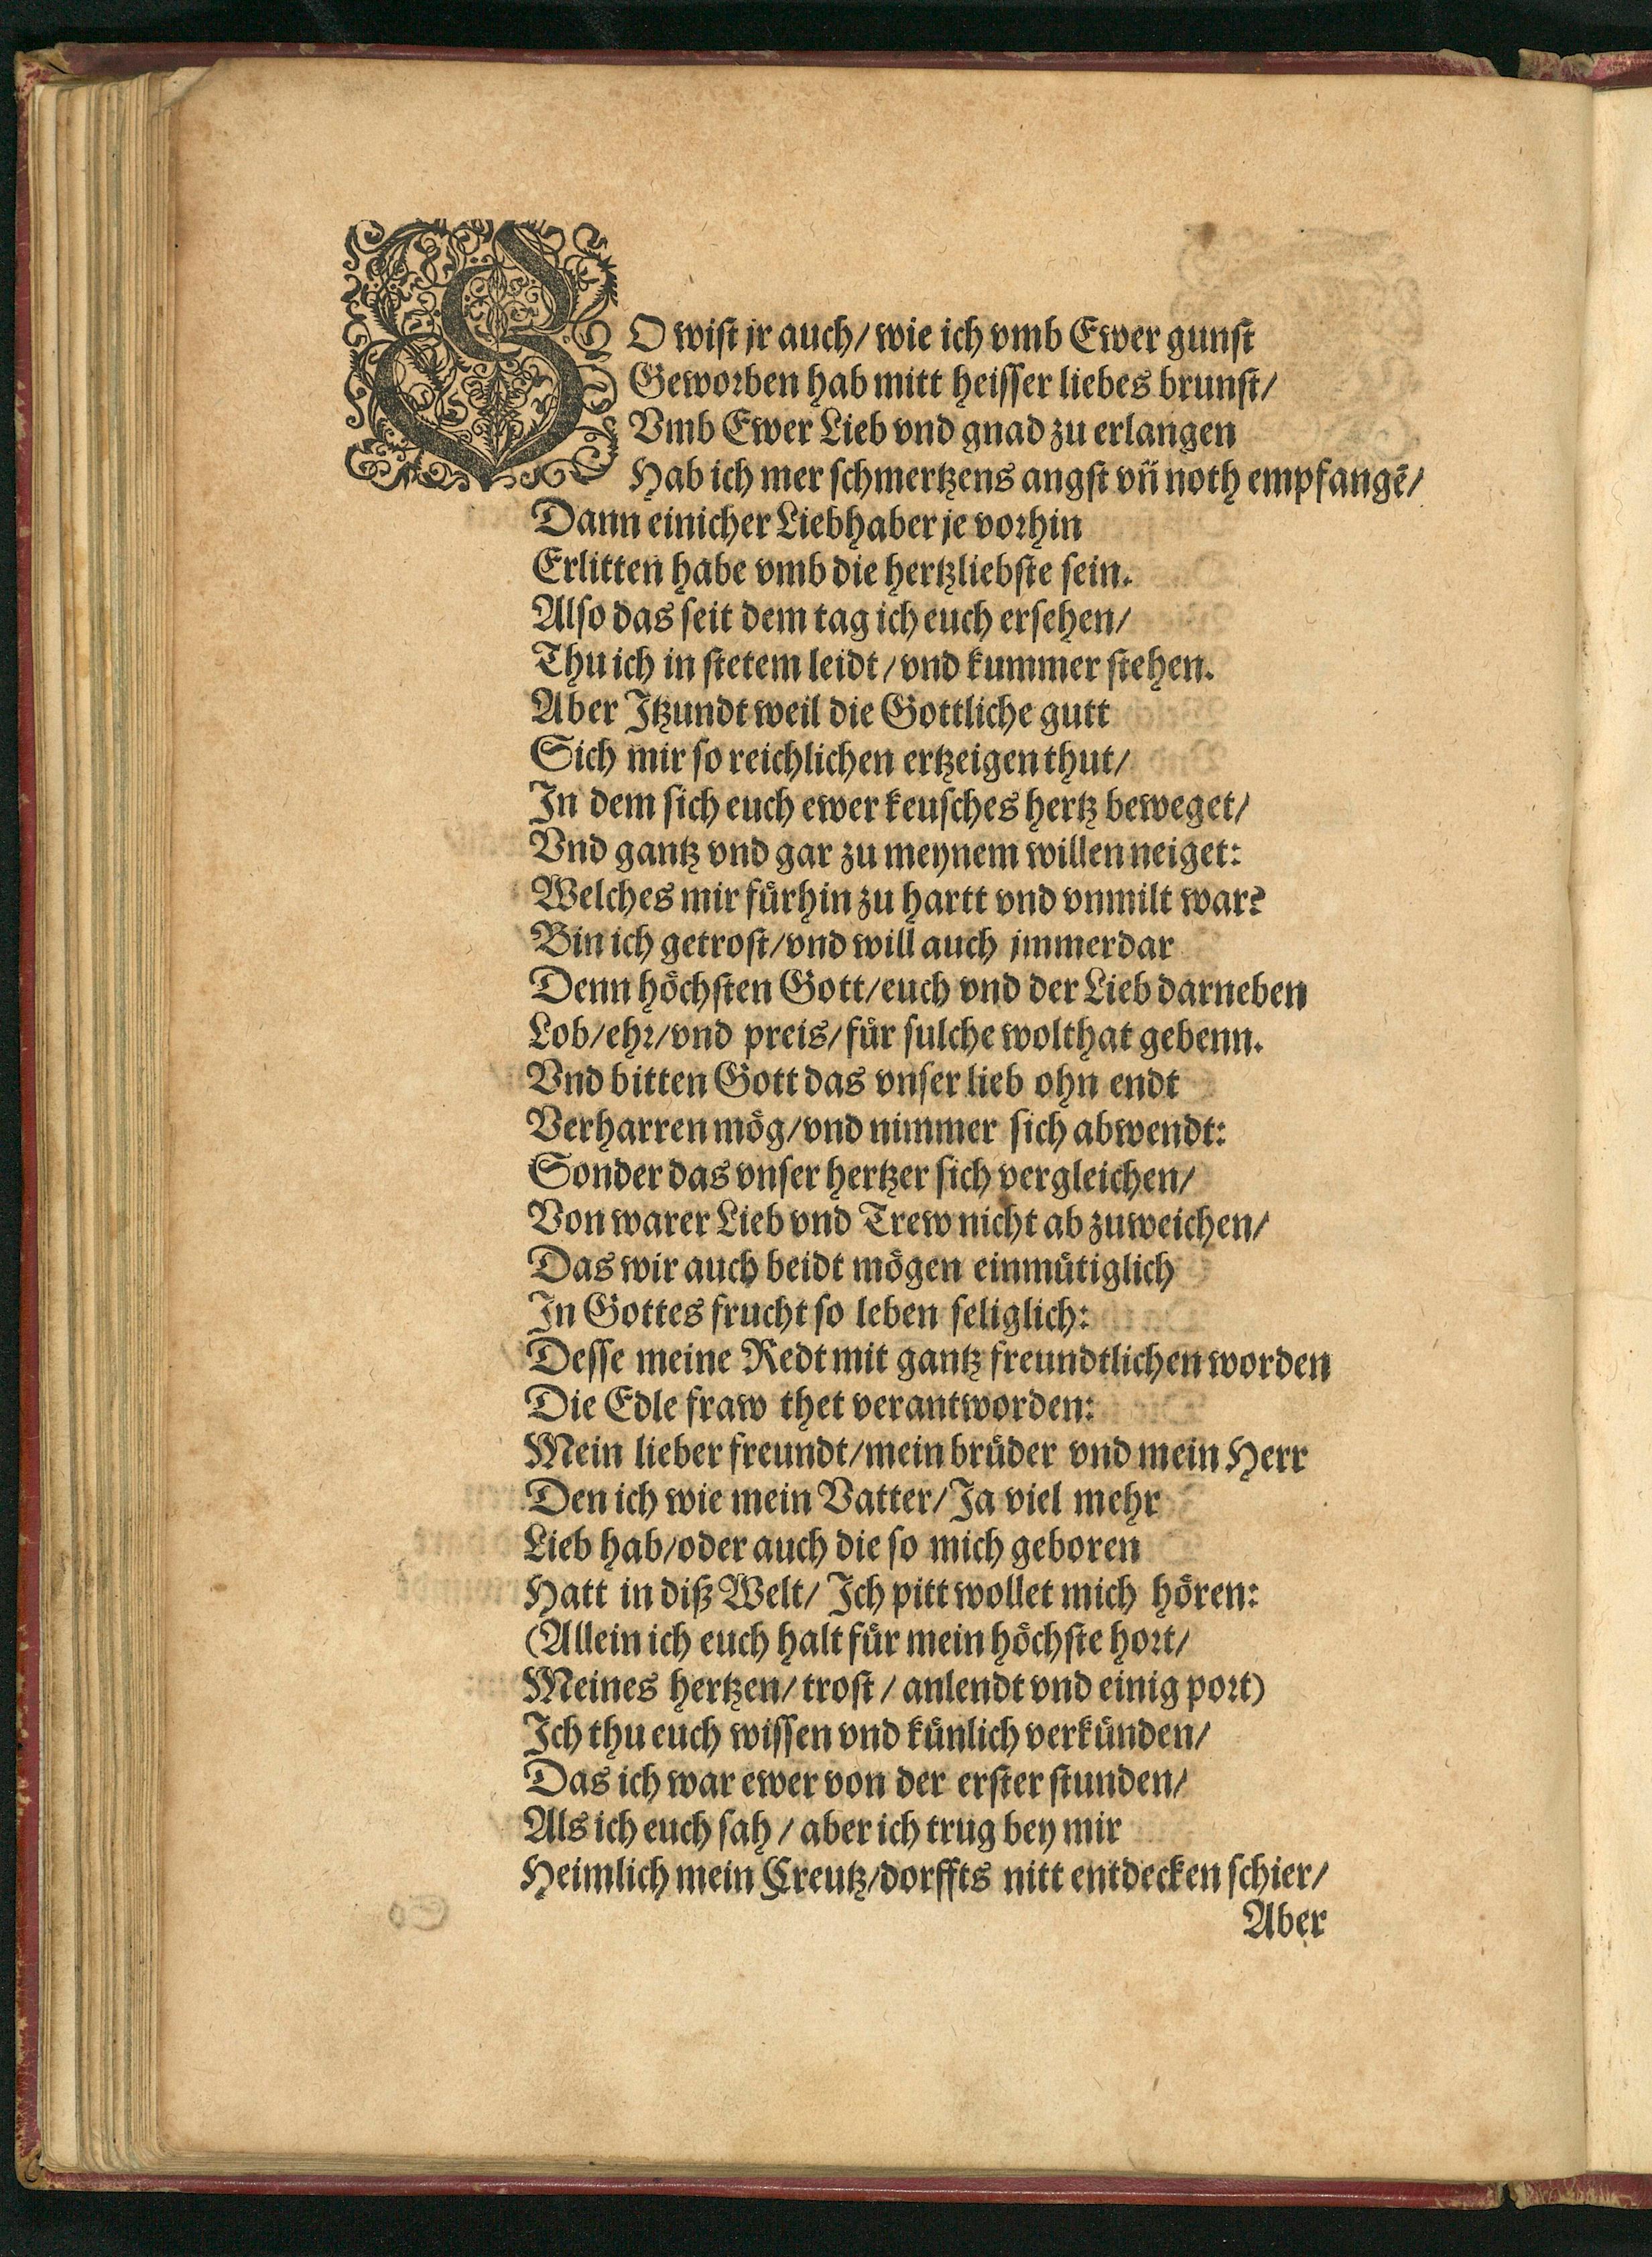 SO wist jr auch/ wie ich vmb Ewer gunst
Geworben hab mitt heisser liebes brunst/
Vmb Ewer Lieb vnd gnad zu erlangen
Hab ich mer schmertzens angst vñ noth empfangẽ/
Dann einicher Liebhaber je vorhin
Erlitten habe vmb die hertzliebste sein.
Also das seit dem tag ich euch ersehen/
Thu ich in stetem leidt/ vnd kummer stehen.
Aber Itzundt weil die Gottliche gutt
Sich mir so reichlichen ertzeigen thut/
In dem sich euch ewer keusches hertz beweget/
Vnd gantz vnd gar zu meynem willen neiget:
Welches mir fürhin zu hartt vnd vnmilt war?
Bin ich getrost/ vnd will auch jmmerdar
Denn höchsten Gott/ euch vnd der Lieb darneben
Lob/ ehr/ vnd preis/ für sulche wolthat gebenn.
Vnd bitten Gott das vnser lieb ohn endt
Verharren mög/ vnd nimmer sich abwendt:
Sonder das vnser hertzer sich vergleichen/
Von warer Lieb vnd Trew nicht ab zuweichen/
Das wir auch beidt mögen einmütiglich
In Gottes frucht so leben seliglich:
Desse meine Redt mit gantz freundtlichen worden
Die Edle fraw thet verantworden:
Mein lieber freundt/ mein brüder vnd mein Herr
Den ich wie mein Vatter/ Ja viel mehr
Lieb hab/ oder auch die so mich geboren
Hatt in diß Welt/ Ich pitt wollet mich hören:
(Allein ich euch halt für mein höchste hort/
Meines hertzen/ trost/ anlendt vnd einig port)
Ich thu euch wissen vnd künlich verkünden/
Das ich war ewer von der erster stunden/
Als ich euch sah/ aber ich trug bey mir
Heimlich mein Creutz/ dorffts nitt entdecken schier/
Aber